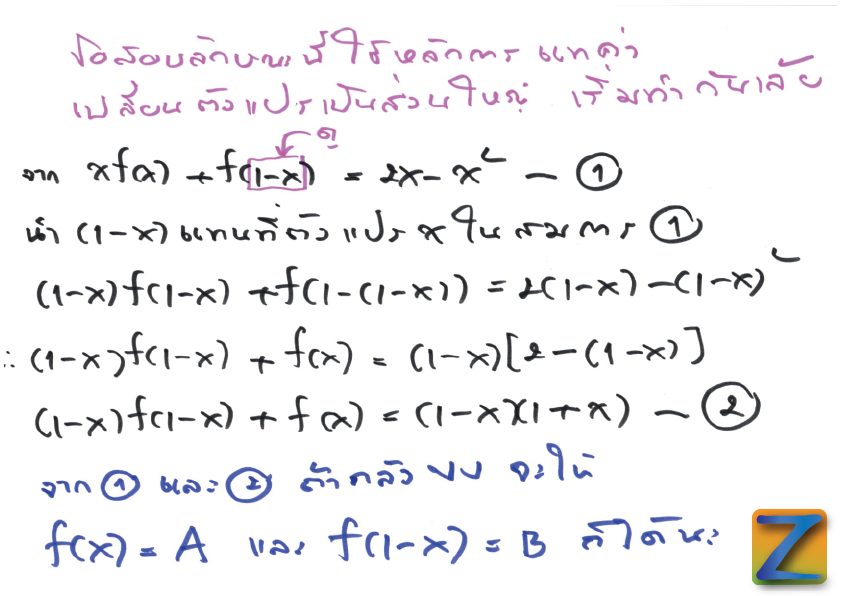 ข้อสอบลักษณะนี้ ใช้หลักการ แทนค่า
เปลี่ยนตัวแปรเป็นส่วนใหญ่ เริ่มทำกันเลย
ดู
จาก xf(x) + f(1-x) = 2x - x² — ①
นำ (1-x) แทนที่ตัวแปร x ในสมการ ①
(1-x)f(1-x) + f(1-(1-x)) = 2(1-x) - (1-x)²
∴ (1-x)f(1-x) + f(x) = (1-x)[2-(1-x)]
(1-x)f(1-x) + f(x) = (1-x)(1+x) — ②
จาก ① และ ② ถ้ากลัว งง จะให้
f(x) = A และ f(1-x) = B ก็ได้นะ
Z